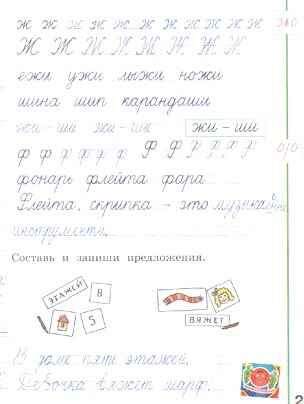 ж ж ж ж ж ж ж ж ж ж ж ж
Ж Ж Ж Ж Ж Ж Ж Ж
ежи ужи лыжи ножи
шина шип карандаши
жи - ши жи - ши жи - ши
ф ф ф ф ф ф Ф Ф Ф Ф Ф Ф
фонарь флейта фара
Флейта, скрипка - это музыкальные
инструменты.
Составь и запиши предложения.
ЭТАЖЕЙ 8
5 ВЯЖЕТ
В доме пять этажей.
Девочка вяжет шарф.
2